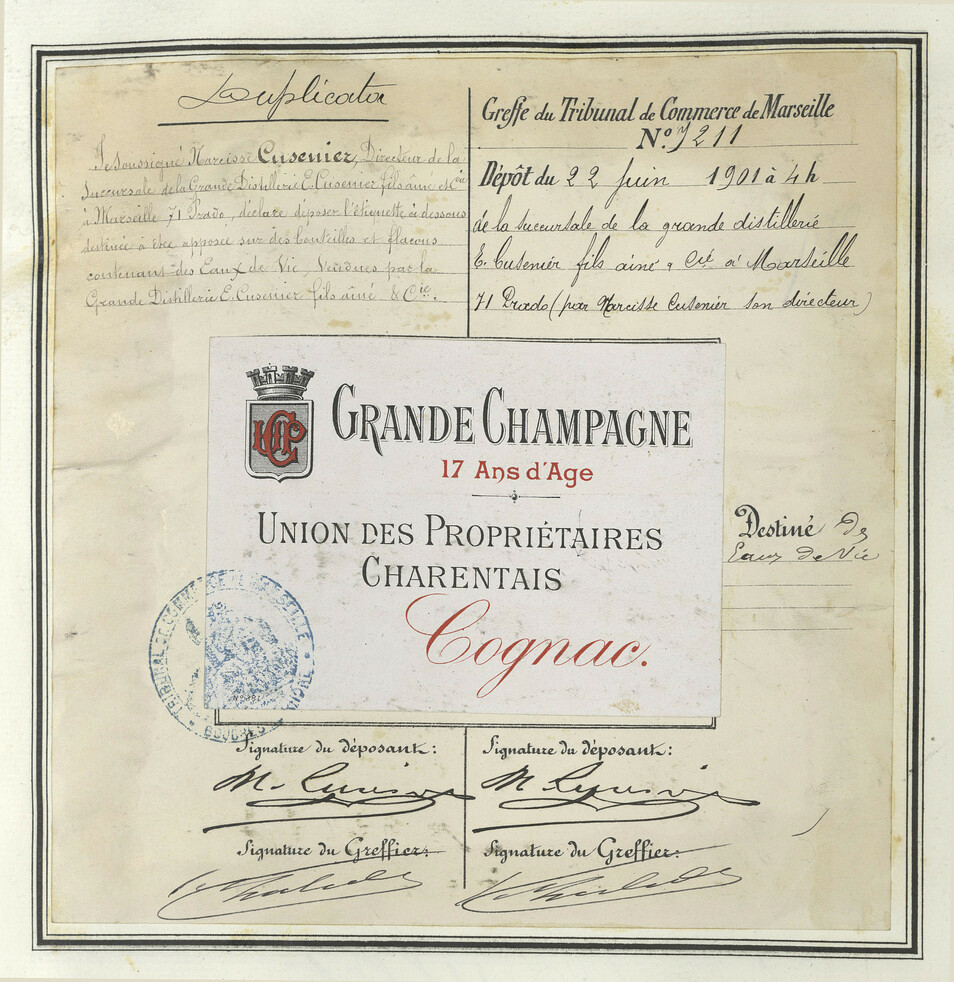 Duplicata
Je soussigné Narcisse Cusenier, Directeur de la
Succursale de la Grande Distillerie E. Cusenier fils ainé et Cie
à Marseille 71 Prado, déclare déposer l'étiquette ci dessous
destinée à être apposée sur des bouteilles et flacons
contenant des Eaux de Vie, Vendues par la
Grande Distillerie E. Cusenier fils ainé & Cie.
Greffe du Tribunal de Commerce de Marseille
No. 7211
Dépôt du 22 juin 1901 à 4h
de la succursale de la grande distillerie
E. Cusenier fils ainé & Cie à Marseille
71 Prado (par Narcisse Cusenier son directeur)
UCP
GRANDE CHAMPAGNE
17 Ans d'Age
UNION DES PROPRIÉTAIRES
CHARENTAIS
Cognac.
Destiné des
Eaux de Vie
TRIBUNAL DE COMMERCE DE MARSEILLE
BOUCHES
Signature du déposant:
N. Cusenier
Signature du Greffier:
Signature du déposant:
N. Cusenier
Signature du Greffier: